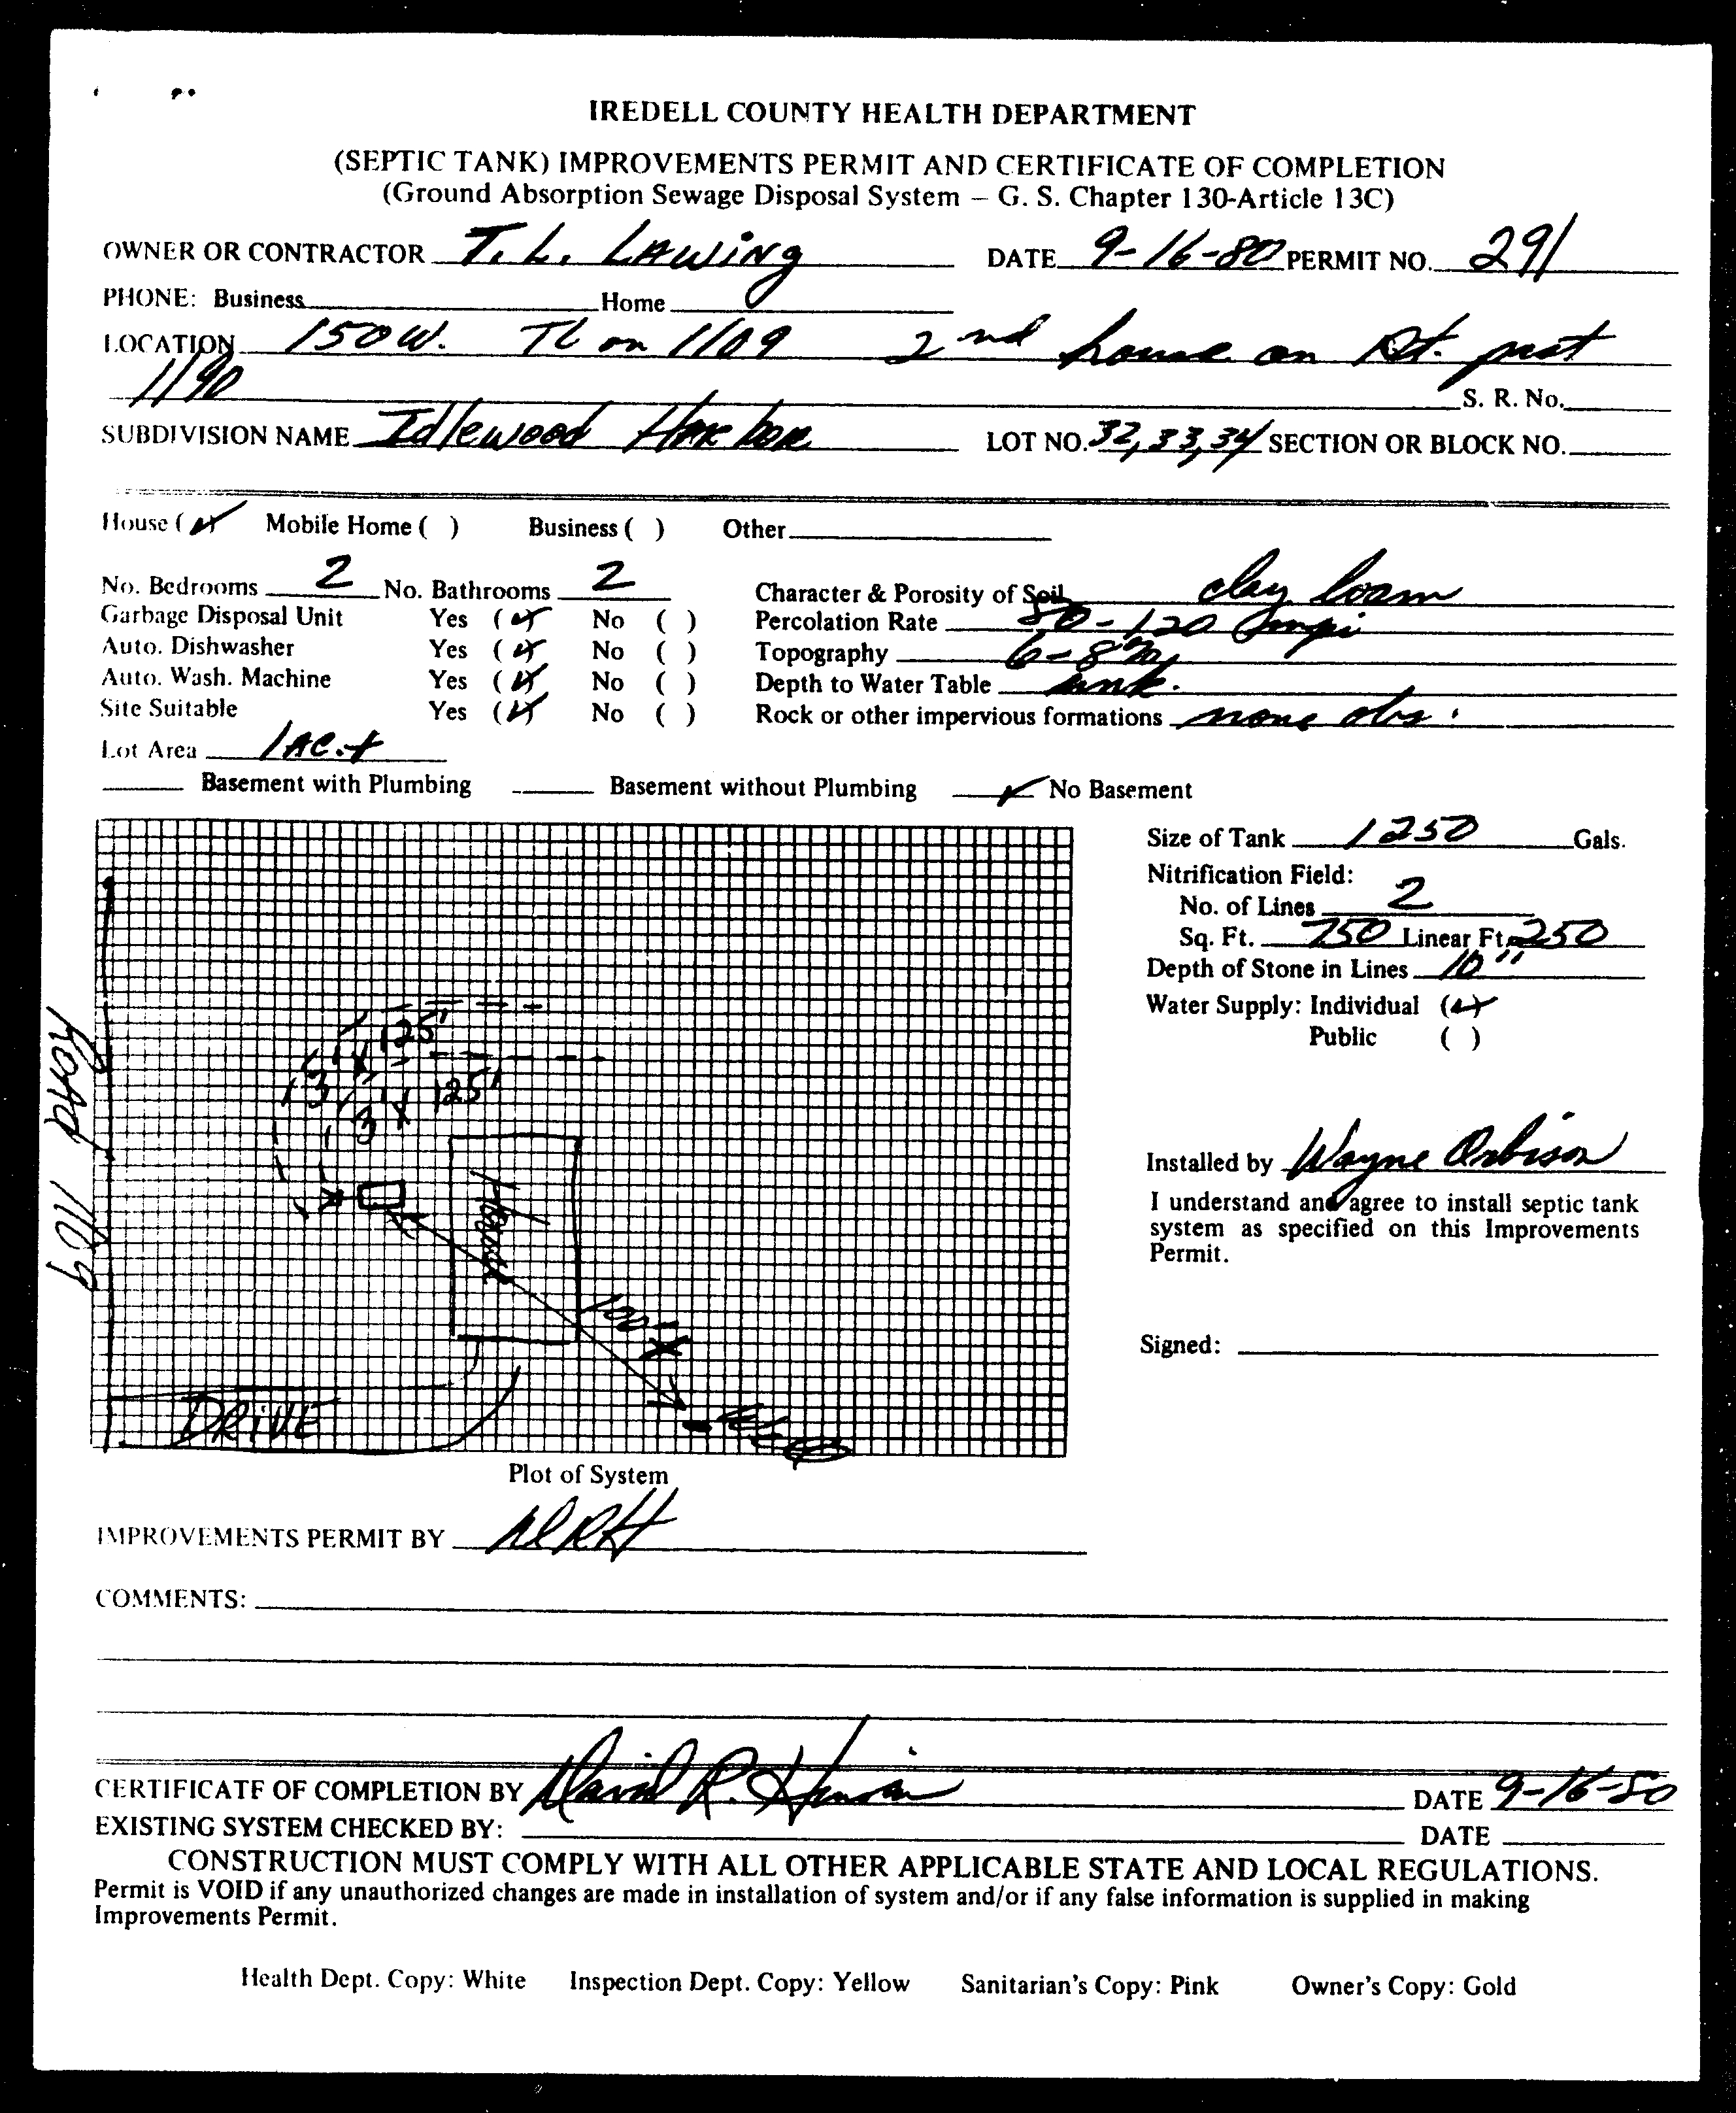 IREDELL COUNTY HEALTH DEPARTMENT
(SEPTIC TANK) IMPROVEMENTS PERMIT AND CERTIFICATE OF COMPLETION
(Ground Absorption Sewage Disposal System – G. S. Chapter 130-Article 13C)
OWNER OR CONTRACTOR T. L. LAWING DATE 9-16-80 PERMIT NO. 291
PHONE: Business Home
LOCATION 150 W. TL on 1109 2nd house on Rt. past
1190 S. R. No.
SUBDIVISION NAME Idlewood Harbor LOT NO. 32, 33, 34 SECTION OR BLOCK NO.
House (✓) Mobile Home ( ) Business ( ) Other
No. Bedrooms 2 No. Bathrooms 2 Character & Porosity of Soil clay loam
Garbage Disposal Unit Yes (✓) No ( ) Percolation Rate -120 mpi
Auto. Dishwasher Yes (✓) No ( ) Topography 6-8%
Auto. Wash. Machine Yes (✓) No ( ) Depth to Water Table unk.
Site Suitable Yes (✓) No ( ) Rock or other impervious formations none obs.
Lot Area 1 AC.+
Basement with Plumbing Basement without Plumbing ✓ No Basement
Size of Tank 1250 Gals.
Nitrification Field:
No. of Lines 2
Sq. Ft. 750 Linear Ft. 250
Depth of Stone in Lines 10"
Water Supply: Individual (✓)
Public ( )
Installed by Wayne Orbison
I understand and agree to install septic tank
system as specified on this Improvements
Permit.
Signed:
Road 1109
3' X 125'
3' X 125'
House
100'
DRIVE
Plot of System
IMPROVEMENTS PERMIT BY DRH
COMMENTS:
CERTIFICATE OF COMPLETION BY David R. DATE 9-16-80
EXISTING SYSTEM CHECKED BY: DATE
CONSTRUCTION MUST COMPLY WITH ALL OTHER APPLICABLE STATE AND LOCAL REGULATIONS.
Permit is VOID if any unauthorized changes are made in installation of system and/or if any false information is supplied in making
Improvements Permit.
Health Dept. Copy: White Inspection Dept. Copy: Yellow Sanitarian's Copy: Pink Owner's Copy: Gold